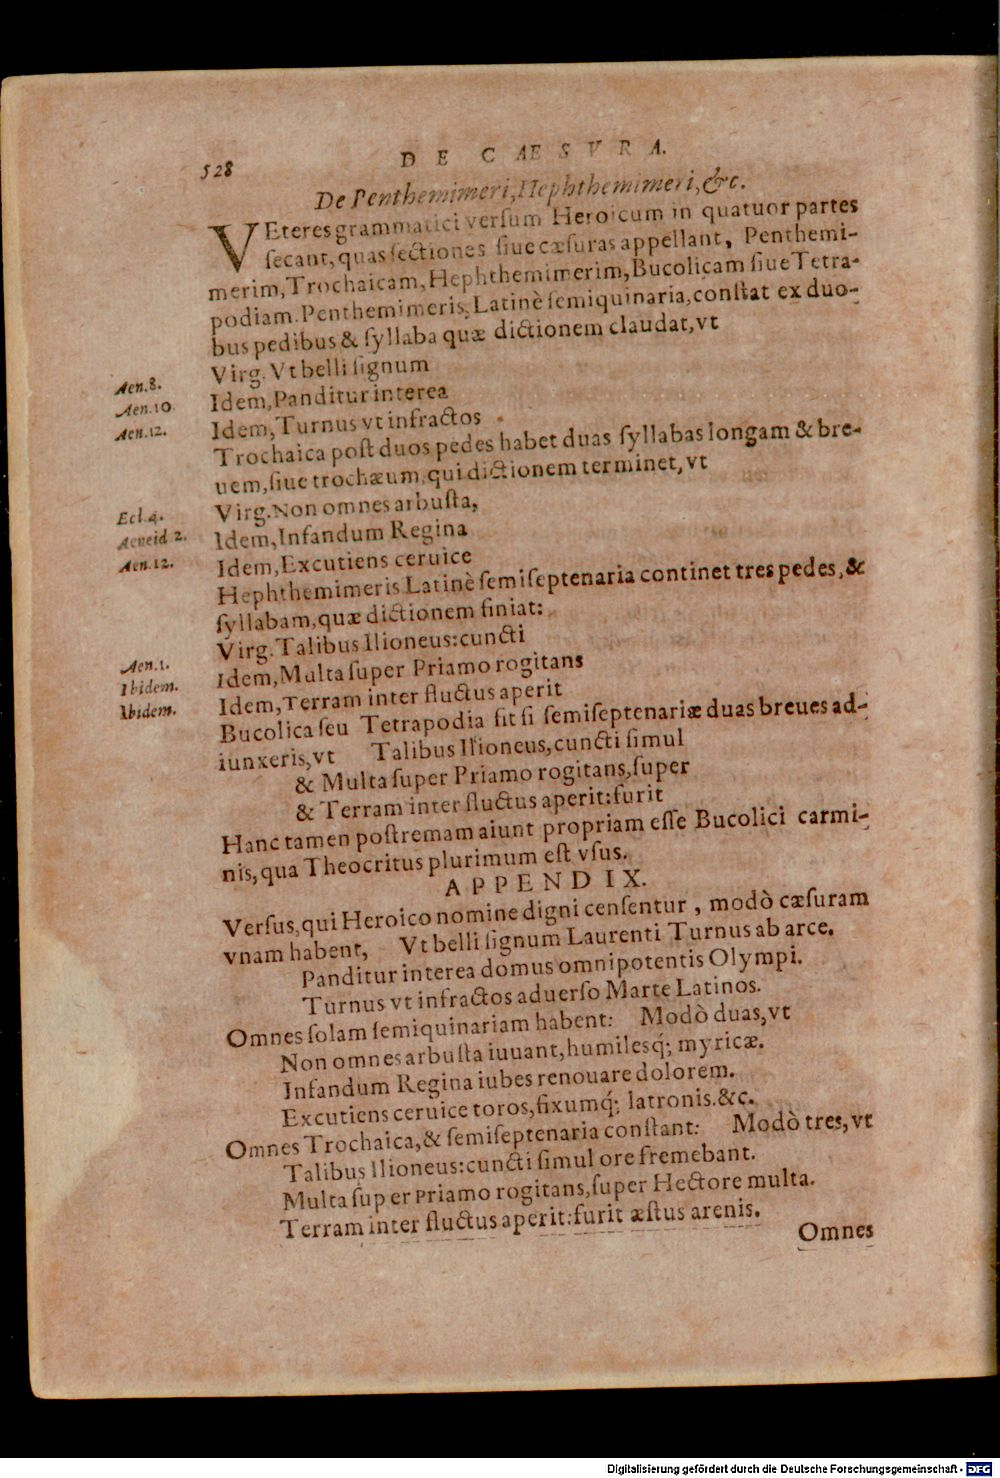 528
DE CÆSVRA.
De Penthemimeri, Hephthemimeri, &c.
VEteres grammatici versum Heroicum in quatuor partes
secant, quas sectiones siue cæsuras appellant, Penthemi-
merim, Trochaicam, Hephthemimerim, Bucolicam siue Tetra-
podiam. Penthemimeris, Latinè semiquinaria, constat ex duo-
bus pedibus & syllaba quæ dictionem claudat, vt
Aen. 8. Virg. Vt belli signum
Aen. 10 Idem, Panditur interea
Aen. 12. Idem, Turnus vt infractos
Trochaica post duos pedes habet duas syllabas longam & bre-
uem, siue trochæum, qui dictionem terminet, vt
Ecl. 4. Virg. Non omnes arbusta,
Aeneid 2. Idem, Infandum Regina
Aen. 12. Idem, Excutiens ceruice
Hephthemimeris Latinè semiseptenaria continet tres pedes, &
syllabam, quæ dictionem finiat:
Aen. 1. Virg. Talibus Ilioneus: cuncti
Ibidem. Idem, Multa super Priamo rogitans
Ibidem. Idem, Terram inter fluctus aperit
Bucolica seu Tetrapodia fit si semiseptenariæ duas breues ad-
iunxeris, vt Talibus Ilioneus, cuncti simul
& Multa super Priamo rogitans, super
& Terram inter fluctus aperit: furit
Hanc tamen postremam aiunt propriam esse Bucolici carmi-
nis, qua Theocritus plurimum est vsus.
APPENDIX.
Versus, qui Heroico nomine digni censentur, modò cæsuram
vnam habent, Vt belli signum Laurenti Turnus ab arce.
Panditur interea domus omnipotentis Olympi.
Turnus vt infractos aduerso Marte Latinos.
Omnes solam semiquinariam habent: Modò duas, vt
Non omnes arbusta iuuant, humilesq́; myricæ.
Infandum Regina iubes renouare dolorem.
Excutiens ceruice toros, fixumq́; latronis. &c.
Omnes Trochaica, & semiseptenaria constant: Modò tres, vt
Talibus Ilioneus: cuncti simul ore fremebant.
Multa super Priamo rogitans, super Hectore multa.
Terram inter fluctus aperit: furit æstus arenis.
Omnes
Digitalisierung gefördert durch die Deutsche Forschungsgemeinschaft - DFG